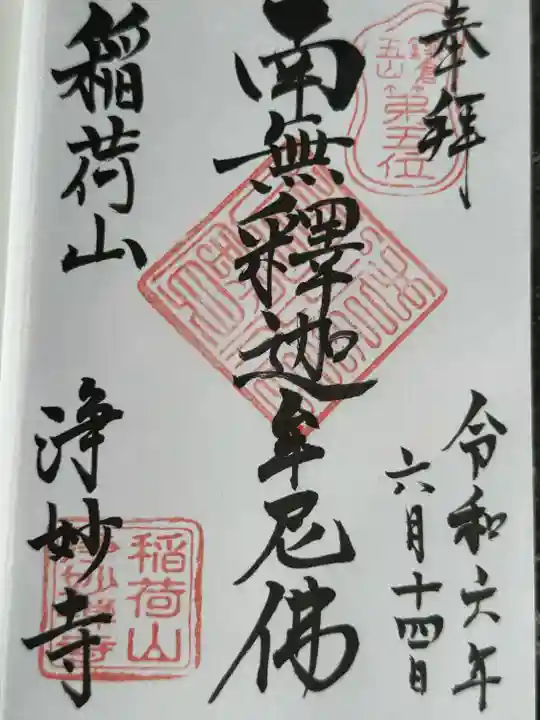 奉拜
鎌倉
五山
第五位
令和六年
六月十四日
南無釋迦牟尼佛
稲荷山
浄妙寺
稲荷山